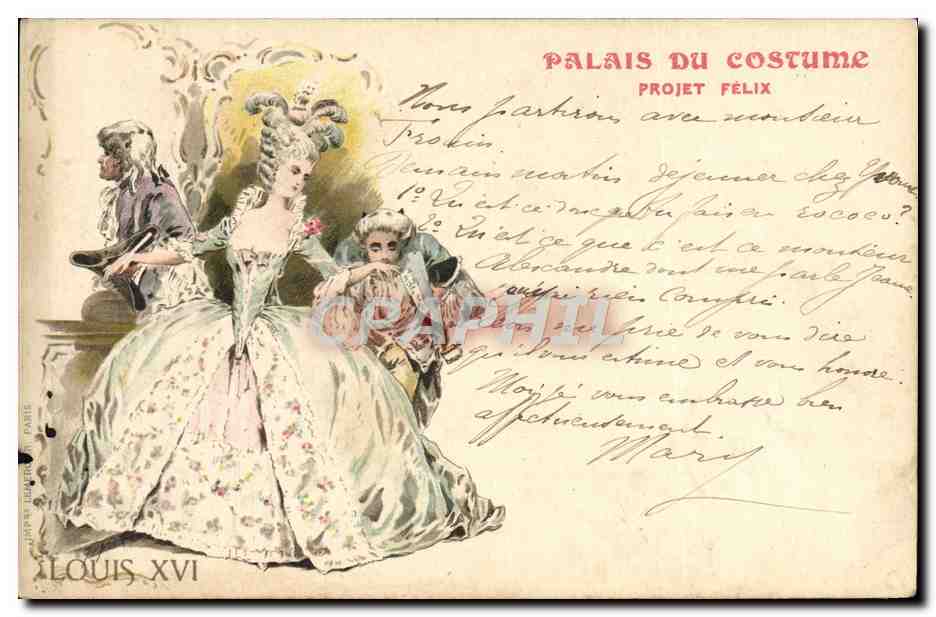 PALAIS DU COSTUME
PROJET FÉLIX
Nous partirons avec monsieur
Demain matin déjeuner chez Yvonne
1º Qu'est-ce donc en rococo?
2º Qu'est ce que c'est ce monsieur
Alexandre dont me parle Jeanne
rien compris.
me prie de vous dire
qu'il vous estime et vous honore.
Moi je vous embrasse bien
affectueusement.
Mary
CPARAMA
LOUIS XVI
PARIS